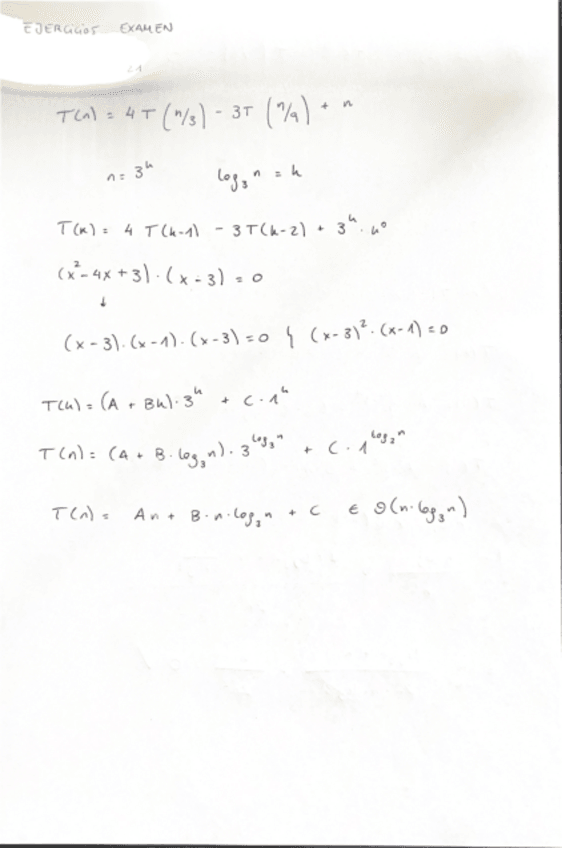 EJERCICIOS EXAMEN
T(n) = 4T (n/3) - 3T (n/9) + n
n = 3^k log₃ n = k
T(k) = 4 T(k-1) - 3T(k-2) + 3^k · k⁰
(x²-4x+3) · (x-3) = 0
↓
(x-3)·(x-1)·(x-3) = 0 } (x-3)²·(x-1) = 0
T(k) = (A + Bk)·3^k + C·1^k
T(n) = (A + B·log₃n)·3^log₃n + C·1^log₂n
T(n) = An + B·n·log₃n + C ∈ Θ(n·log₃n)